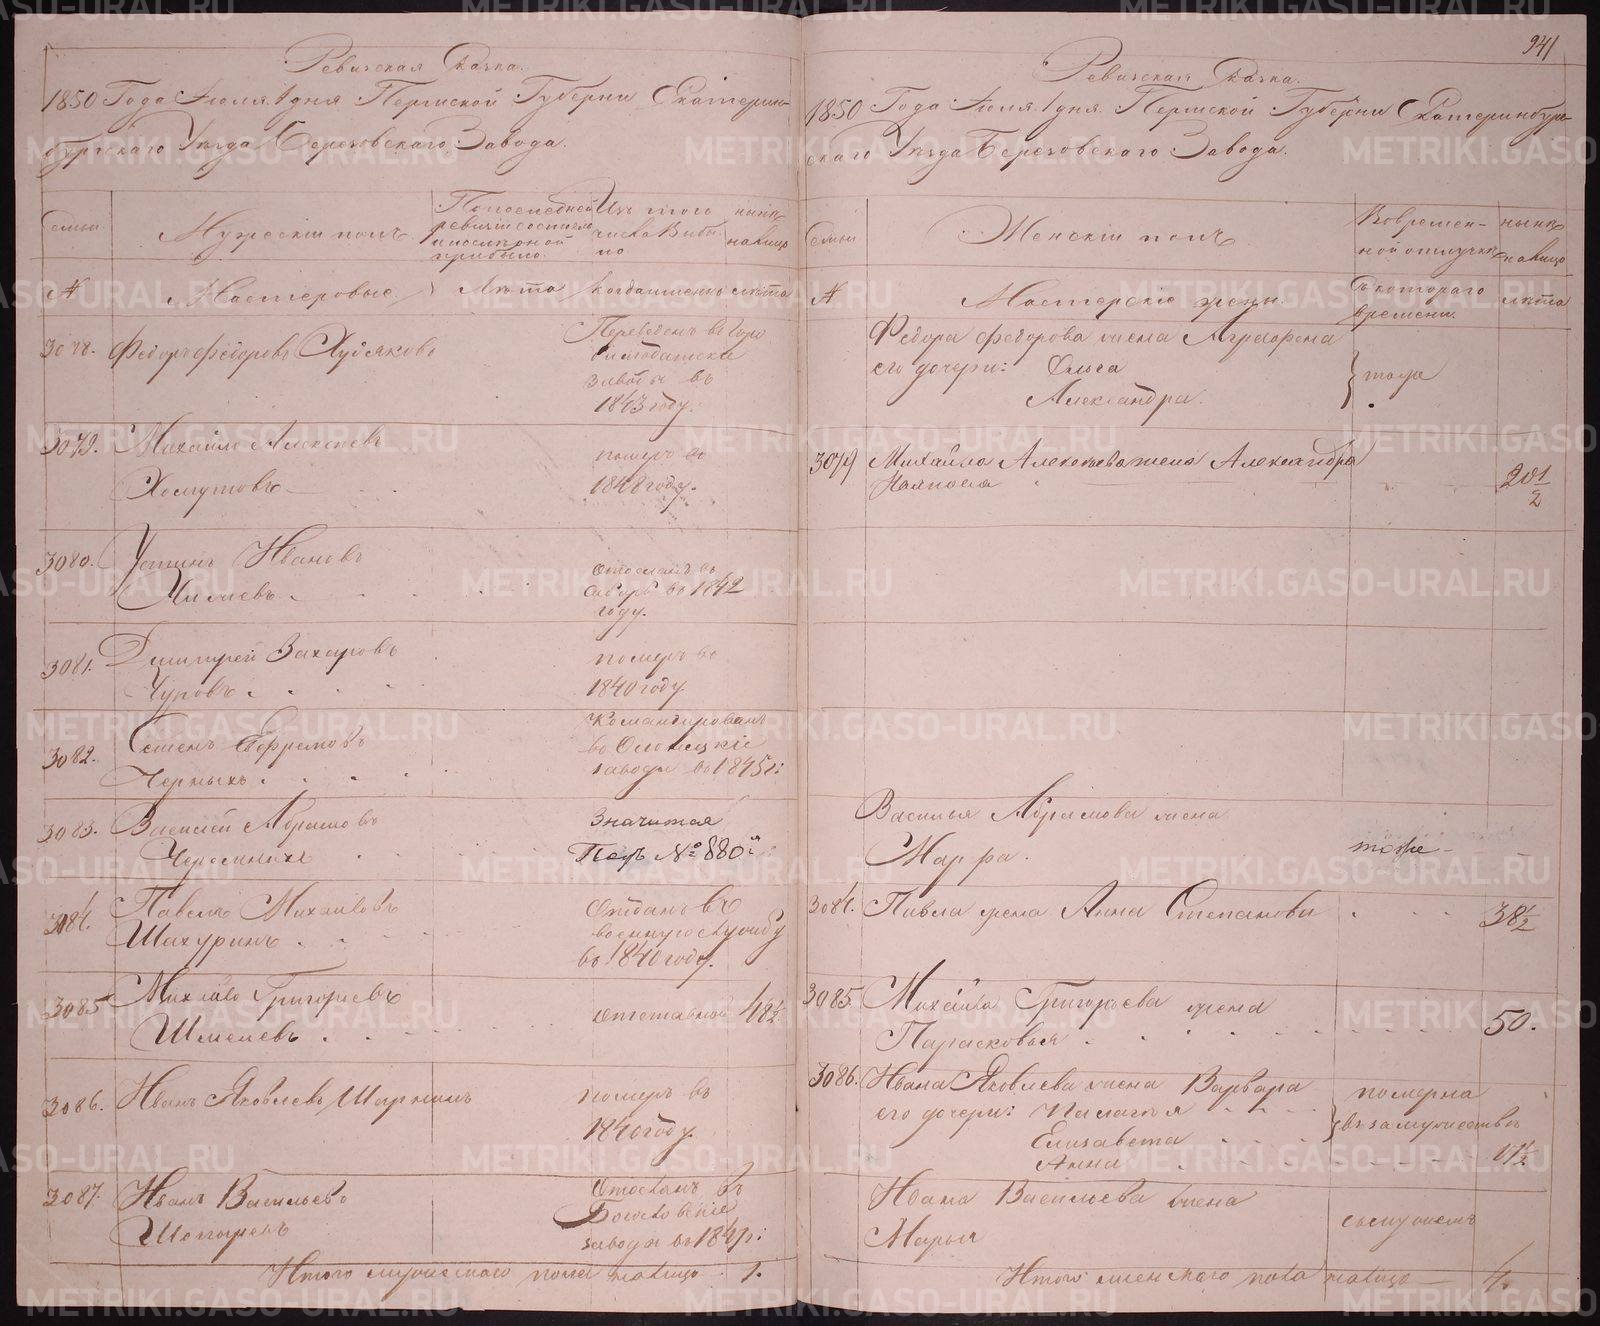 Ревизская Сказка.
1850 Года Июля 1 дня Пермской Губернии Екатерин-
бургскаго Уезда Березовскаго Завода.
Семьи
Мужескій полъ
По последней ревизіи состояло и после оной прибыло
Изъ того числа выбыло
ныне на лицо
№
Мастеровые
Лета
когда именно
лета
3078. Федоръ Федоровъ Худяковъ
Переведенъ въ
заводы въ
1843 году.
3079. Михайло Алексеевъ
Хомутовъ
померъ въ
1848 году.
3080. Устинъ Ивановъ
Отосланъ въ
въ 1842
году.
3081. Дмитрей Захаровъ
Чуровъ
померъ въ
1840 году
3082. Семенъ Ефремовъ
Черныхъ
Командированъ
во Олонецкіе
заводы въ 1845 г:
3083. Василей Абрамовъ
Черемныхъ
Значится
Подъ № 880й
3084. Павелъ Михайловъ
Шахуринъ
Отданъ въ
военную службу
въ 1840 году.
3085 Михайло Григорьевъ
Шмелевъ
отставной 48½
3086. Иванъ Яковлевъ
померъ въ
1840 году.
3087. Иванъ Васильевъ
Отосланъ въ
Богословскіе
заводы въ 1847 г:
Итого мужескаго пола на лицо 1.
941
Ревизская Сказка.
1850 Года Июля 1 дня Пермской Губернии Екатеринбург-
скаго Уезда Березовскаго Завода.
Семьи
Женскій полъ
Во времен-
ной отлучке
ныне
на лицо
№
Мастерскіе жены
съ котораго
времени
лета
Федора Федорова жена Аграфена
его дочери: Ольга
Александра.
тоже
3079 Михайла Алексеева жена Александра
20½
Василья Абрамова жена
Марфа.
тоже
3084. Павла жена Анна Степанова
38½
3085. Михайла Григорьева жена
Парасковья
50.
3086. Ивана Яковлева жена Варвара
померла
его дочери: Палагья
Елизавета
въ замужестве
Анна
17½
Ивана Васильева жена
Марья
съ мужемъ
Итого женскаго пола на лицо 4.
METRIKI.GASO-URAL.RU